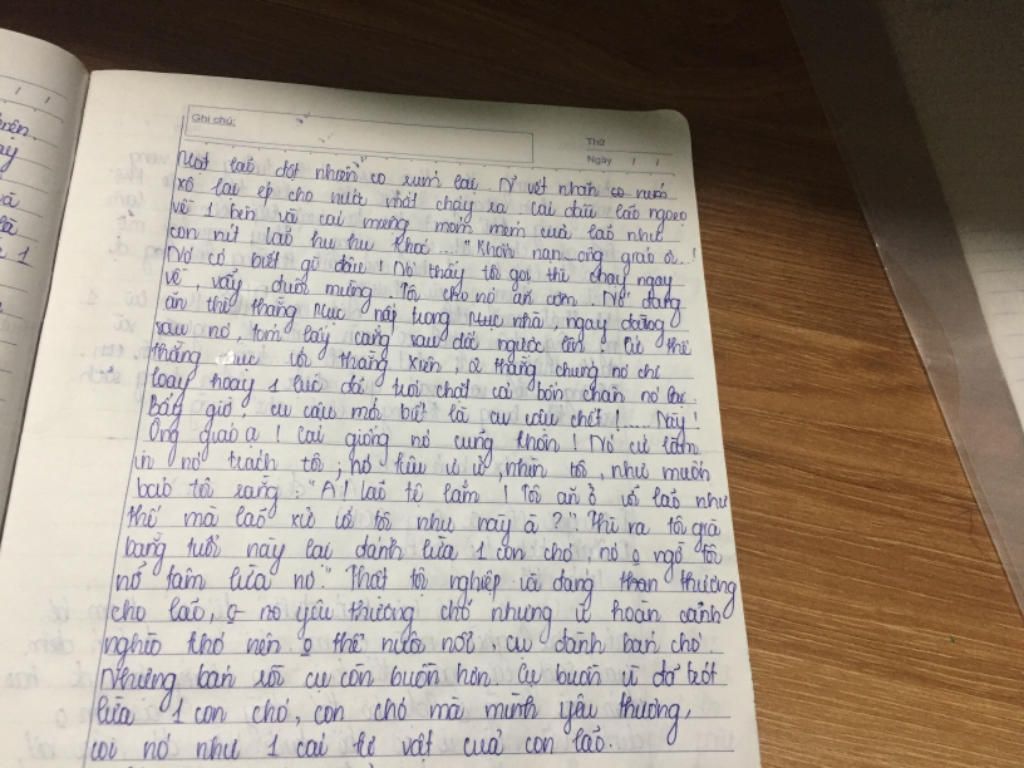 Ghi chú:
Thứ
Ngày / /
Mặt lão đột nhiên co rúm lại. N~ vết nhăn co rúm
xô lại ép cho nước mắt chảy ra. Cái đầu lão ngoẹo
về 1 bên và cái miệng móm mém của lão như
con nít. Lão hu hu khóc... "Khốn nạn... ông giáo ơi..!
Nó có biết gì đâu! Nó thấy tôi gọi thì chạy ngay
về, vẫy đuôi mừng. Tôi cho nó ăn cơm! Nó đang
ăn thì thằng Mục nấp trong Mục nhà, ngay đằng
sau nó, tóm lấy cẳng sau dốc ngược lên. Cứ thế
thằng Mục với thằng Xiên, 2 thằng chúng nó chỉ
loay hoay 1 lúc đã trói chặt cả bốn chân nó lại.
Bấy giờ, cu cậu mới biết là cu cậu chết!..... Này!
Ông giáo ạ! Cái giống nó cũng khôn! Nó cứ làm
in nó trách tôi; nó kêu ư ử, nhìn tôi, như muốn
bảo tôi rằng: "A! lão tệ lắm! Tôi ăn ở với lão như
thế mà lão xử với tôi như này à?". Thì ra tôi già
bằng tuổi này lại đánh lừa 1 con chó, nó o ngờ tôi
nỡ tâm lừa nó." Thật tội nghiệp và đáng thương
cho lão, o nó yêu thương chó nhưng vì hoàn cảnh
nghèo khó nên o thể nuôi nổi, cụ đành bán chó
Nhưng bán rồi cụ còn buồn hơn. Cụ buồn vì đã trót
lừa 1 con chó, con chó mà mình yêu thương,
coi nó như 1 cái kỉ vật của con lão.